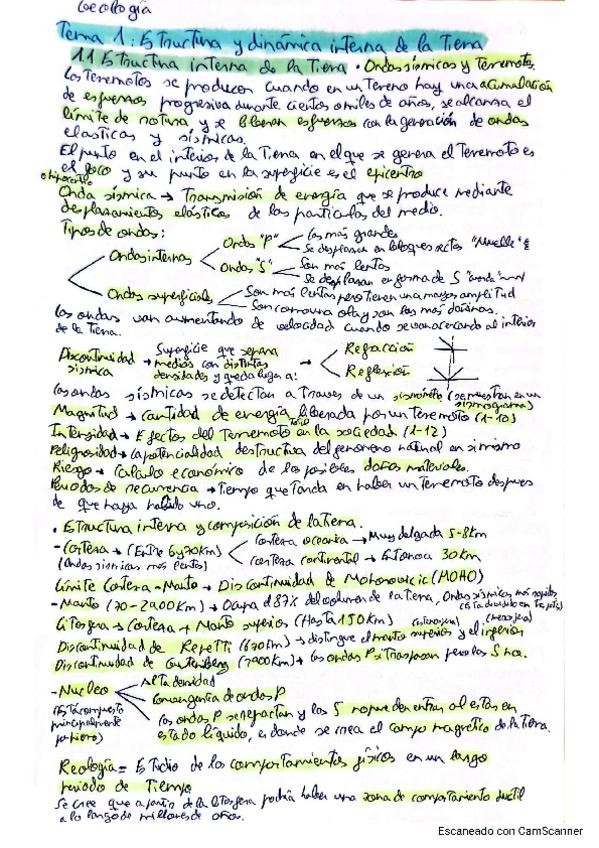 Geología
Tema 1: Estructura y dinámica interna de la Tierra
1.1 Estructura interna de la Tierra · Ondas sísmicas y Terremotos.
Los Terremotos se producen cuando en un Terreno hay una acumulación
de esfuerzos progresiva durante cientos o miles de años, se alcanza el
límite de rotura y se liberan esfuerzos con la generación de ondas
elasticas y sísmicas.
El punto en el interior de la Tierra en el que se genera el Terremoto es
el foco y su punto en la superficie es el epicentro
o hipocentro
Onda sísmica → Transmisión de energía que se produce mediante
desplazamientos elásticos de las partículas del medio.
Tipos de ondas:
Ondas internas
Ondas "P"
Las más grandes
Se desplazan en bloques rectos "Muelle"
Ondas "S"
Son más lentas
Se desplazan en forma de S "onda"
Ondas superficiales
Son más lentas pero tienen una mayor amplitud
Son como una ola y son las más dañinas.
Las ondas van aumentando de velocidad cuando se van acercando al interior
de la Tierra.
Discontinuidad sísmica → Superficie que separa medios con distintas densidades y queda lugar a: →
Refracción
Reflexión
Las ondas sísmicas se detectan a traves de un sismómetro (se muestran en un
sismograma)
Magnitud → Cantidad de energía liberada por un Terremoto (1-10)
Intensidad → Efectos del Terremoto en la sociedad (1-12)
Peligrosidad → Capotencialidad destructiva del fenomeno natural en si mismo
Riesgo → Calculo económico de los posibles daños materiales.
Periodos de recurrencia → Tiempo que tarda en haber un Terremoto despues
de que haya habido uno.
· Estructura interna y composición de la tierra.
- Corteza → (Entre 6 y 70 km)
(Ondas sísmicas más lentas)
Corteza oceanica → Muy delgada 5-8 km
Corteza continental → Entorno a 30 km
Límite Corteza-Manto → Discontinuidad de Mohorovicic (MOHO)
- Manto (70-2900 km) → Ocupa el 87% del volumen de la tierra, Ondas sísmicas más rapidas
Litosfera → Corteza + Manto superior (Hasta 150 km)
Discontinuidad de Repetti (670 km) → distingue el manto superior y el inferior
Discontinuidad de Gutenberg (2900 km) → Las ondas P si traspasan pero las S no.
- Nucleo
(Está compuesto
principalmente
por hierro)
Alta densidad
Convergencia de ondas P
Las ondas P se refractan y las S no pueden entrar al estar en
estado líquido, es donde se crea el campo magnetico de la tierra.
Reología = Estudio de los comportamientos físicos en un largo
periodo de Tiempo
Se cree que a partir de la litosfera podría haber una zona de comportamiento ductil
a lo largo de millones de años.
Escaneado con CamScanner